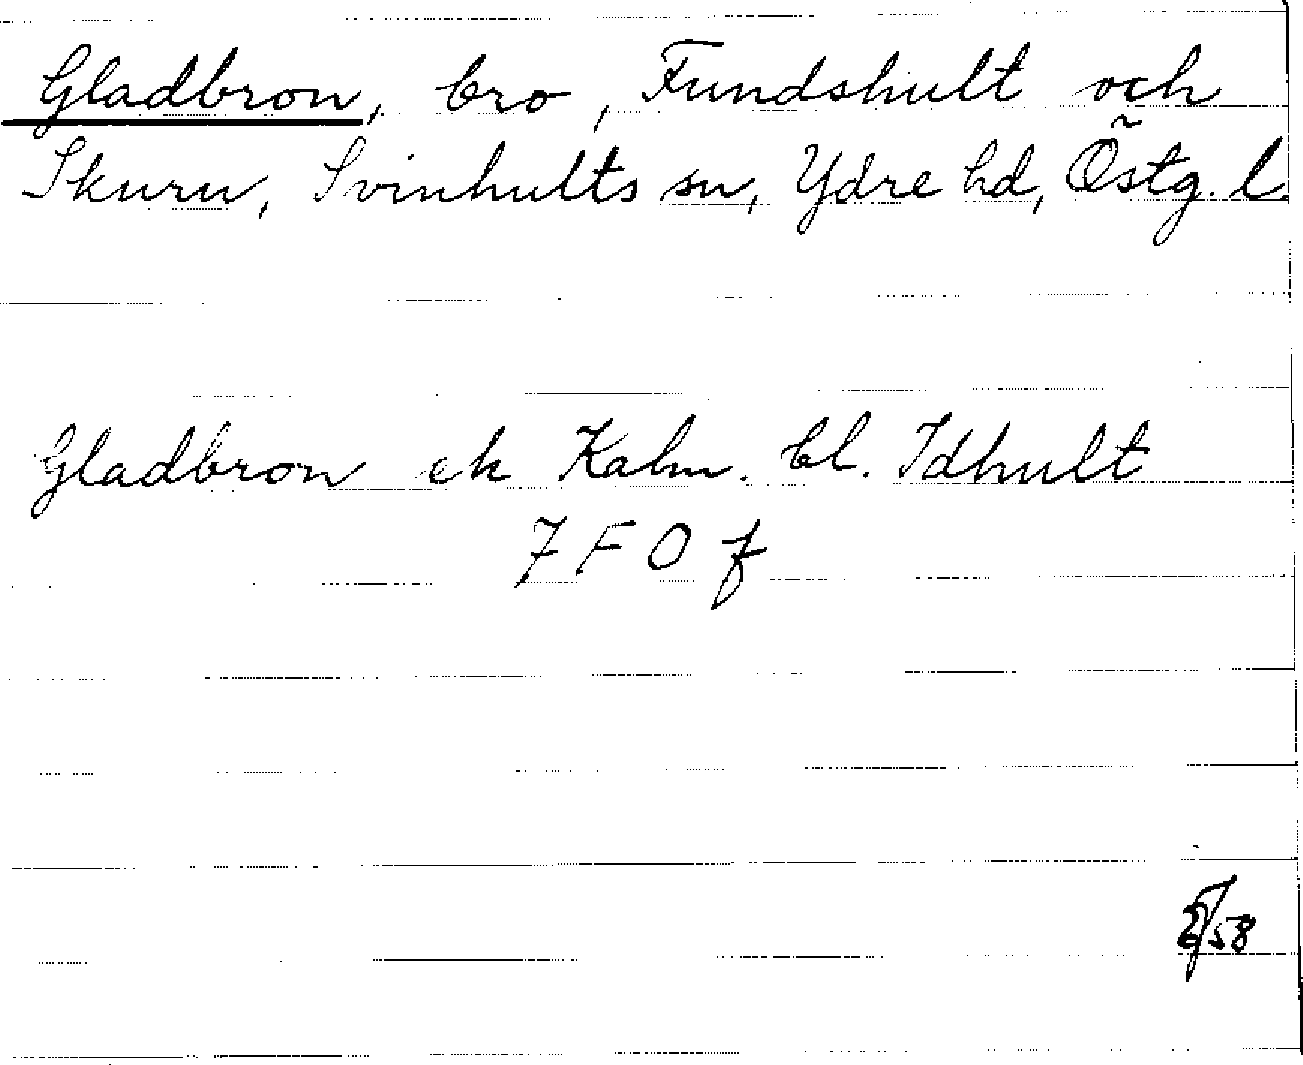 Gladbron, bro, Fundshult och
Skuru, Svinhults sn, Ydre hd, Östg. l.
Gladbron ek Kalm. bl. Idhult
7 F O f
/58